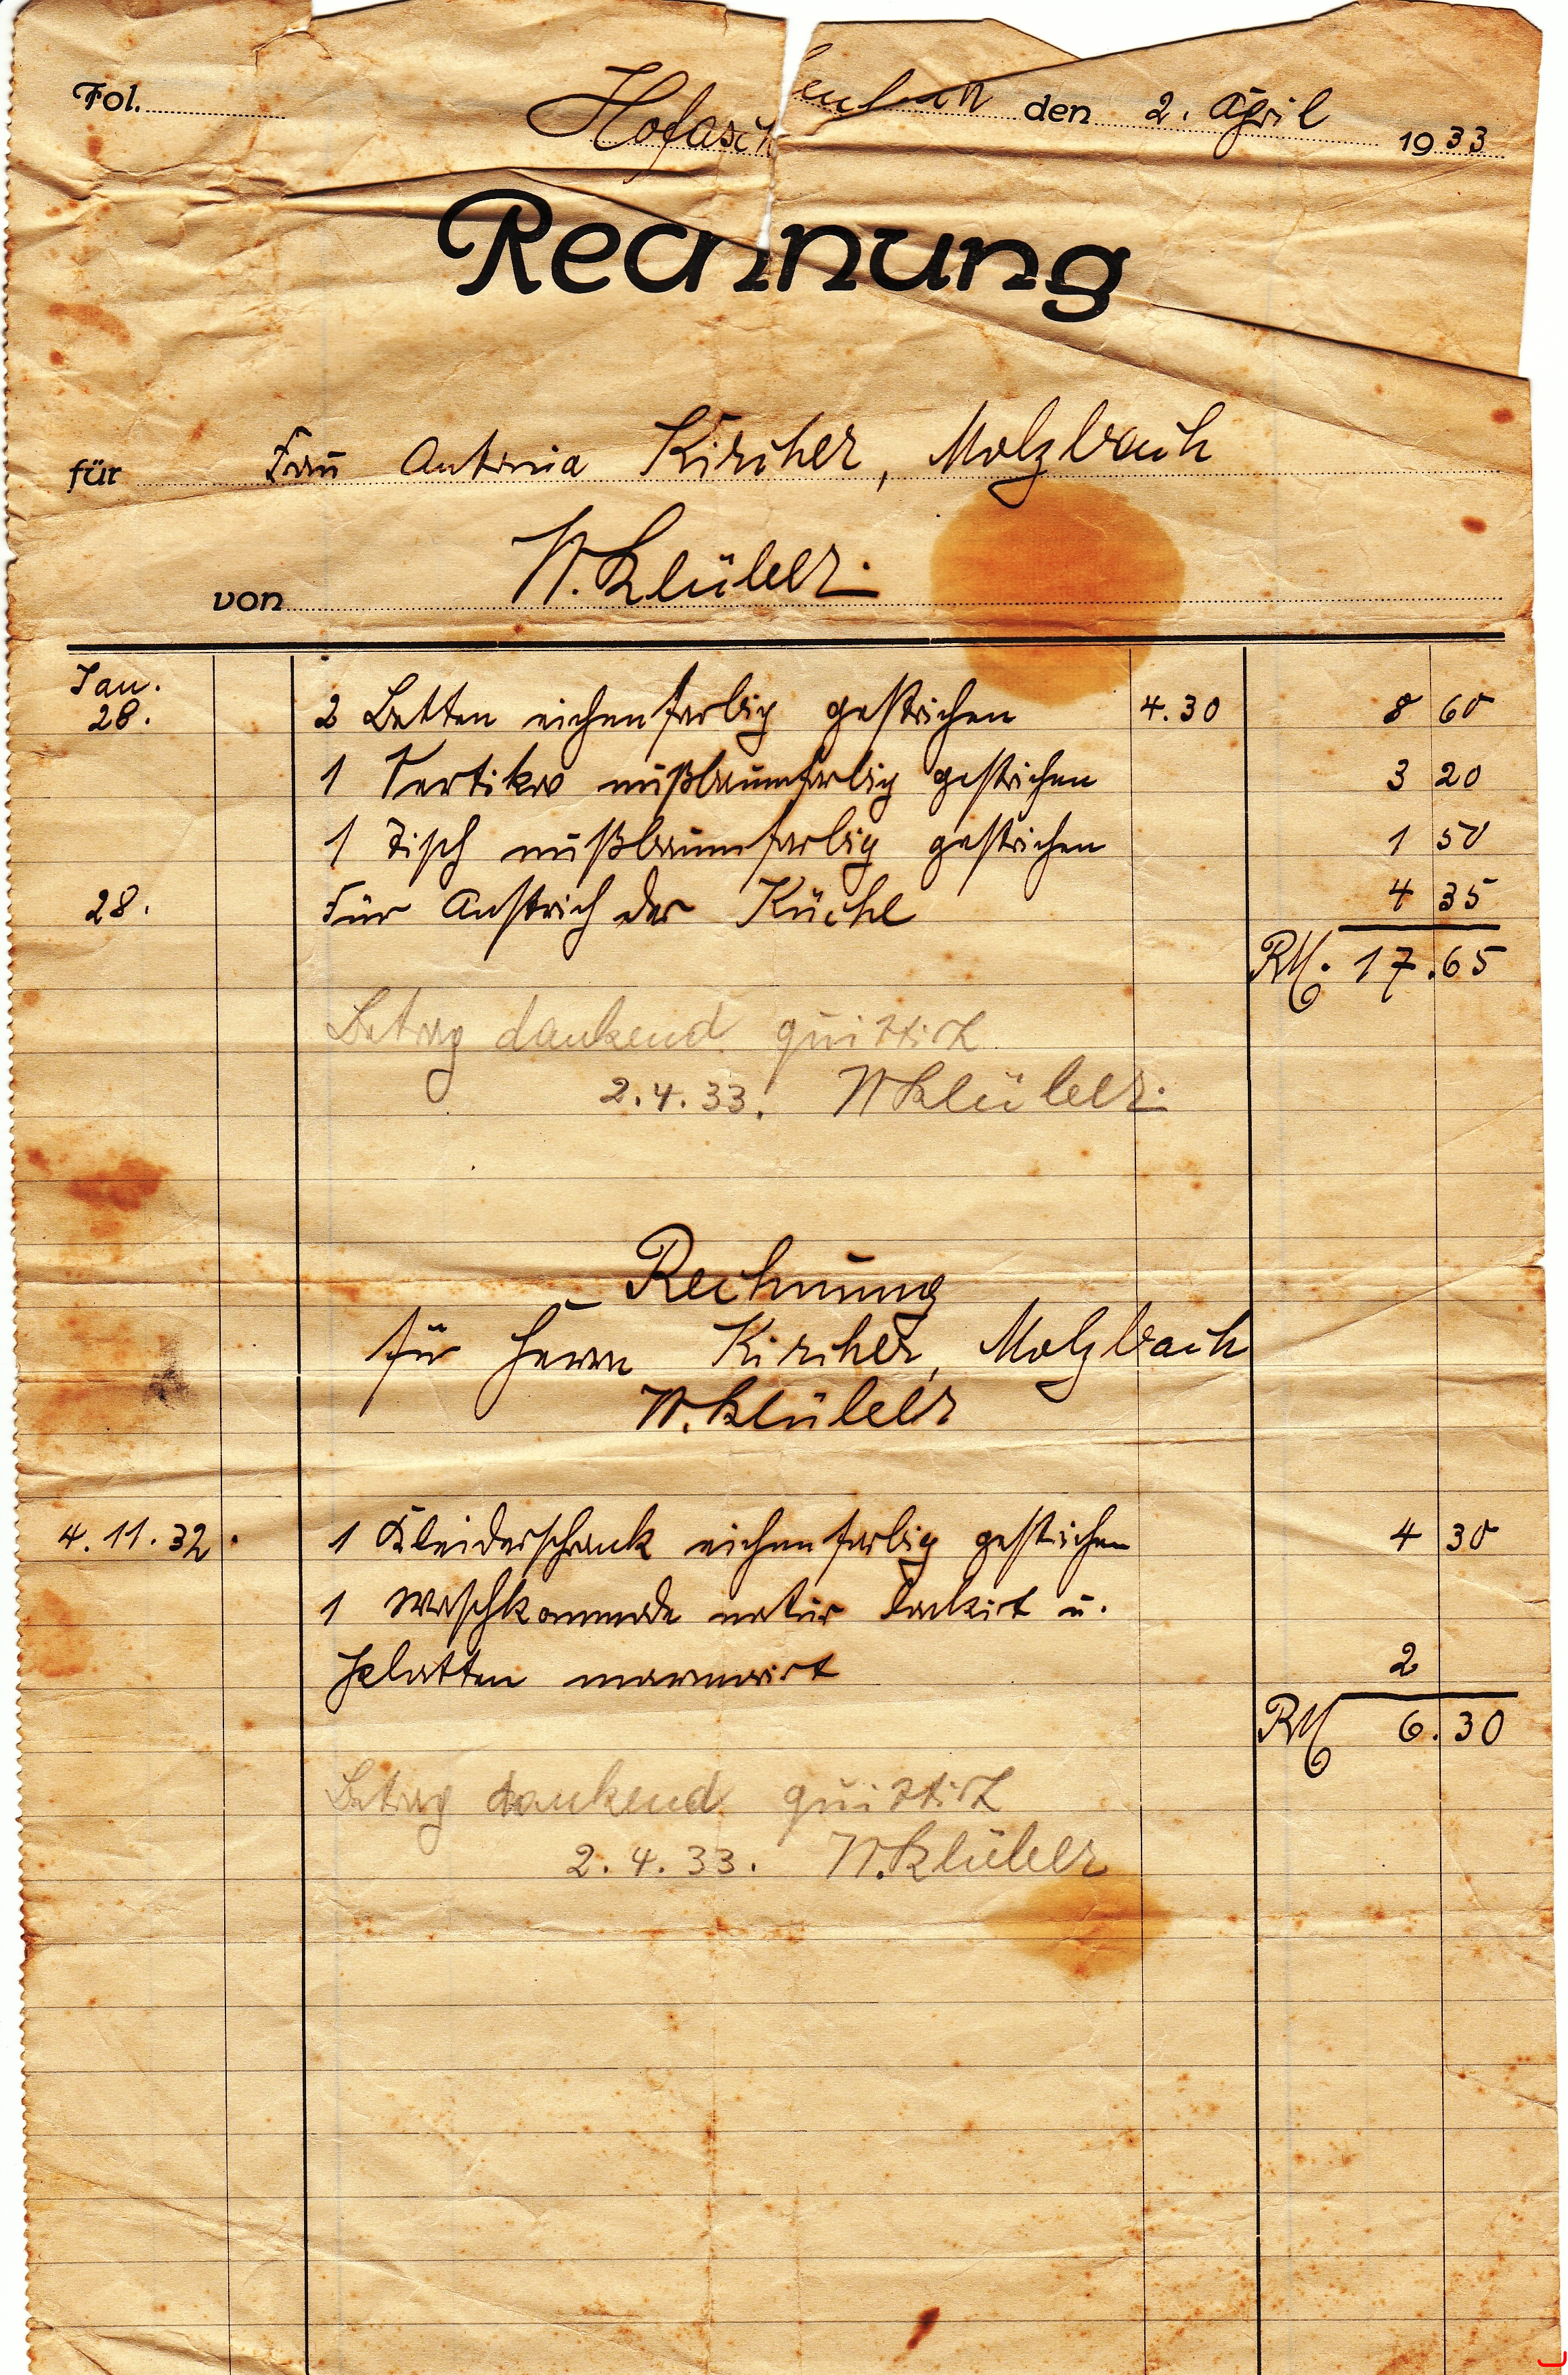 Fol. Hofasch enbach den 2. April 1933
Rechnung
für Frau Antonia Kircher, Molzbach
von W. Klüber.
Jan.
28. 2 Betten eichenfarbig gestrichen 4.30 8 60
1 Vertiko nußbaumfarbig gestrichen 3 20
1 Tisch nußbaumfarbig gestrichen 1 50
28. Für Anstrich der Küche 4 35
RM. 17.65
Betrag dankend quittirt
2.4.33. W Klüber.
Rechnung
für Herrn Kircher, Molzbach
W. Klüber
4.11.32. 1 Kleiderschrank eichenfarbig gestrichen 4 30
1 Waschkommode natur lackirt u.
Platten marmorirt 2
RM 6.30
Betrag dankend quittirt
2.4.33. W. Klüber